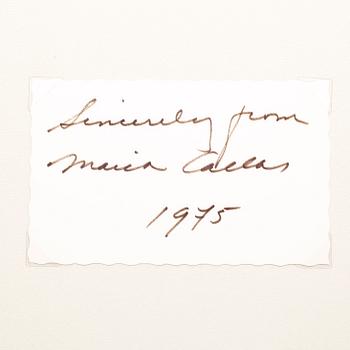 Sincerely from
Maria Callas
1975